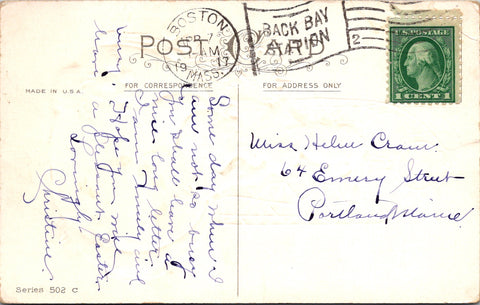 POST CARD
BOSTON
APR 7
PM
1917
MASS.
BACK BAY
STATION
2
U.S. POSTAGE
1 CENT 1
MADE IN U.S.A.
FOR CORRESPONDENCE
FOR ADDRESS ONLY
Some day when I
am not so busy
you shall have a
nice long letter.
I am truly and
Hope you will
have a pleasant Easter
Lovingly
Christine
Miss Helen Cram
64 Emery Street
Portland Maine
Series 502 C